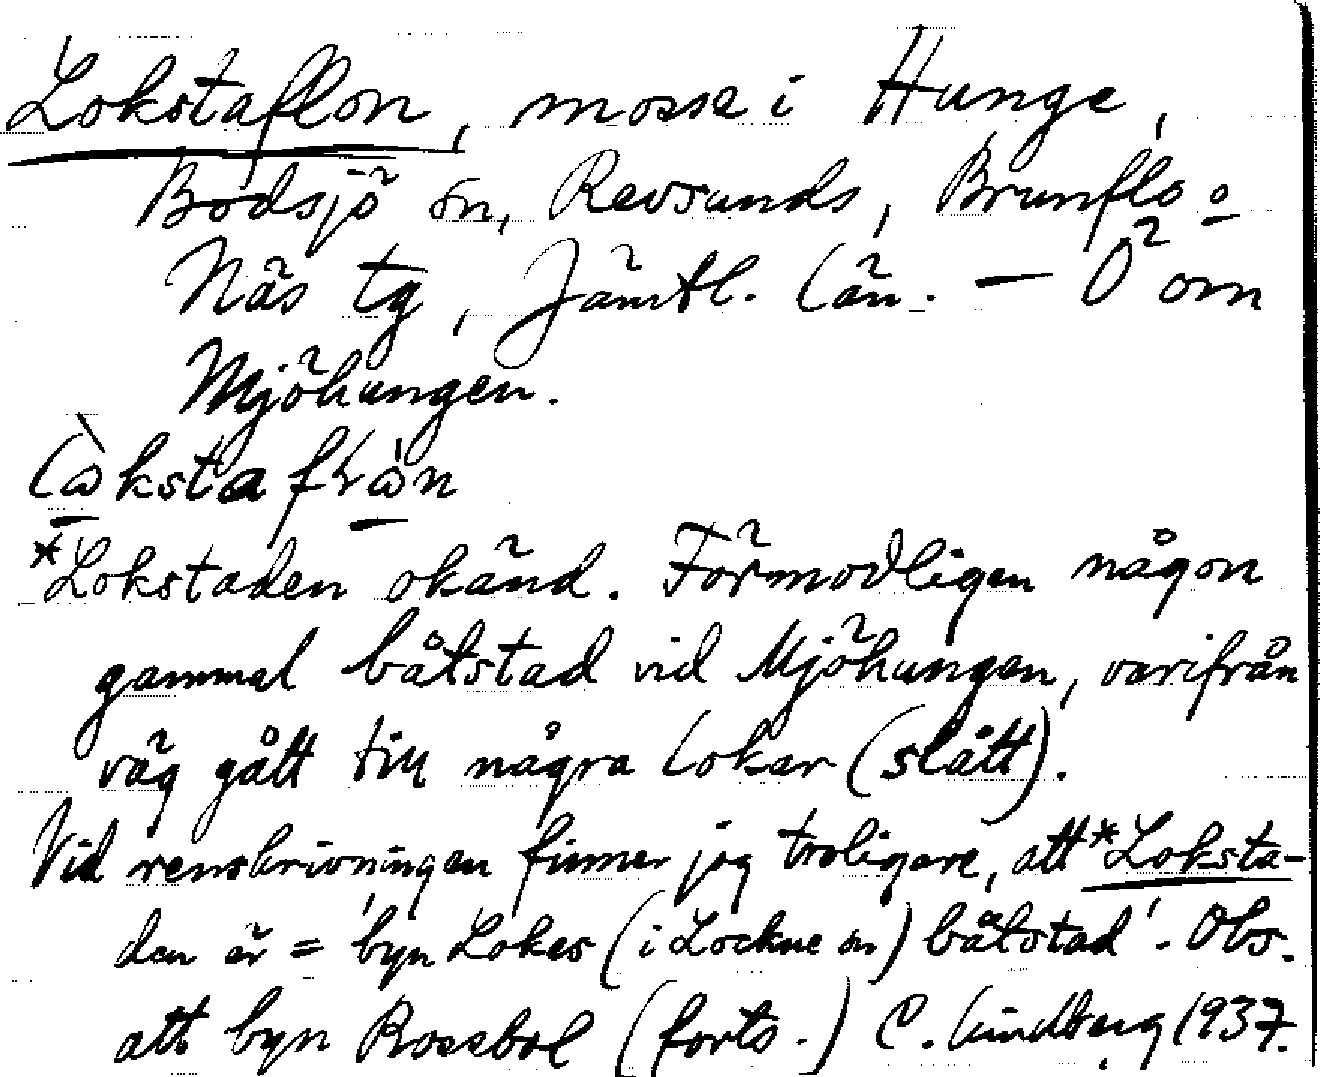 Lokstaflon, mosse i Hunge,
Bodsjö sn, Revsunds, Brunflo o
Näs tg, Jämtl. län. — Ö om
Mjöhungen.
*Lokstaden okänd. Förmodligen någon
gammal båtstad vid Mjöhungen, varifrån
väg gått till några lokar (slått).
Vid renskrivningen finner jag troligare, att *Loksta-
den är = 'byn Lokes (i Lockne sn) båtstad'. Obs.
att byn Rossbol (forts.) C. Lindberg 1937.